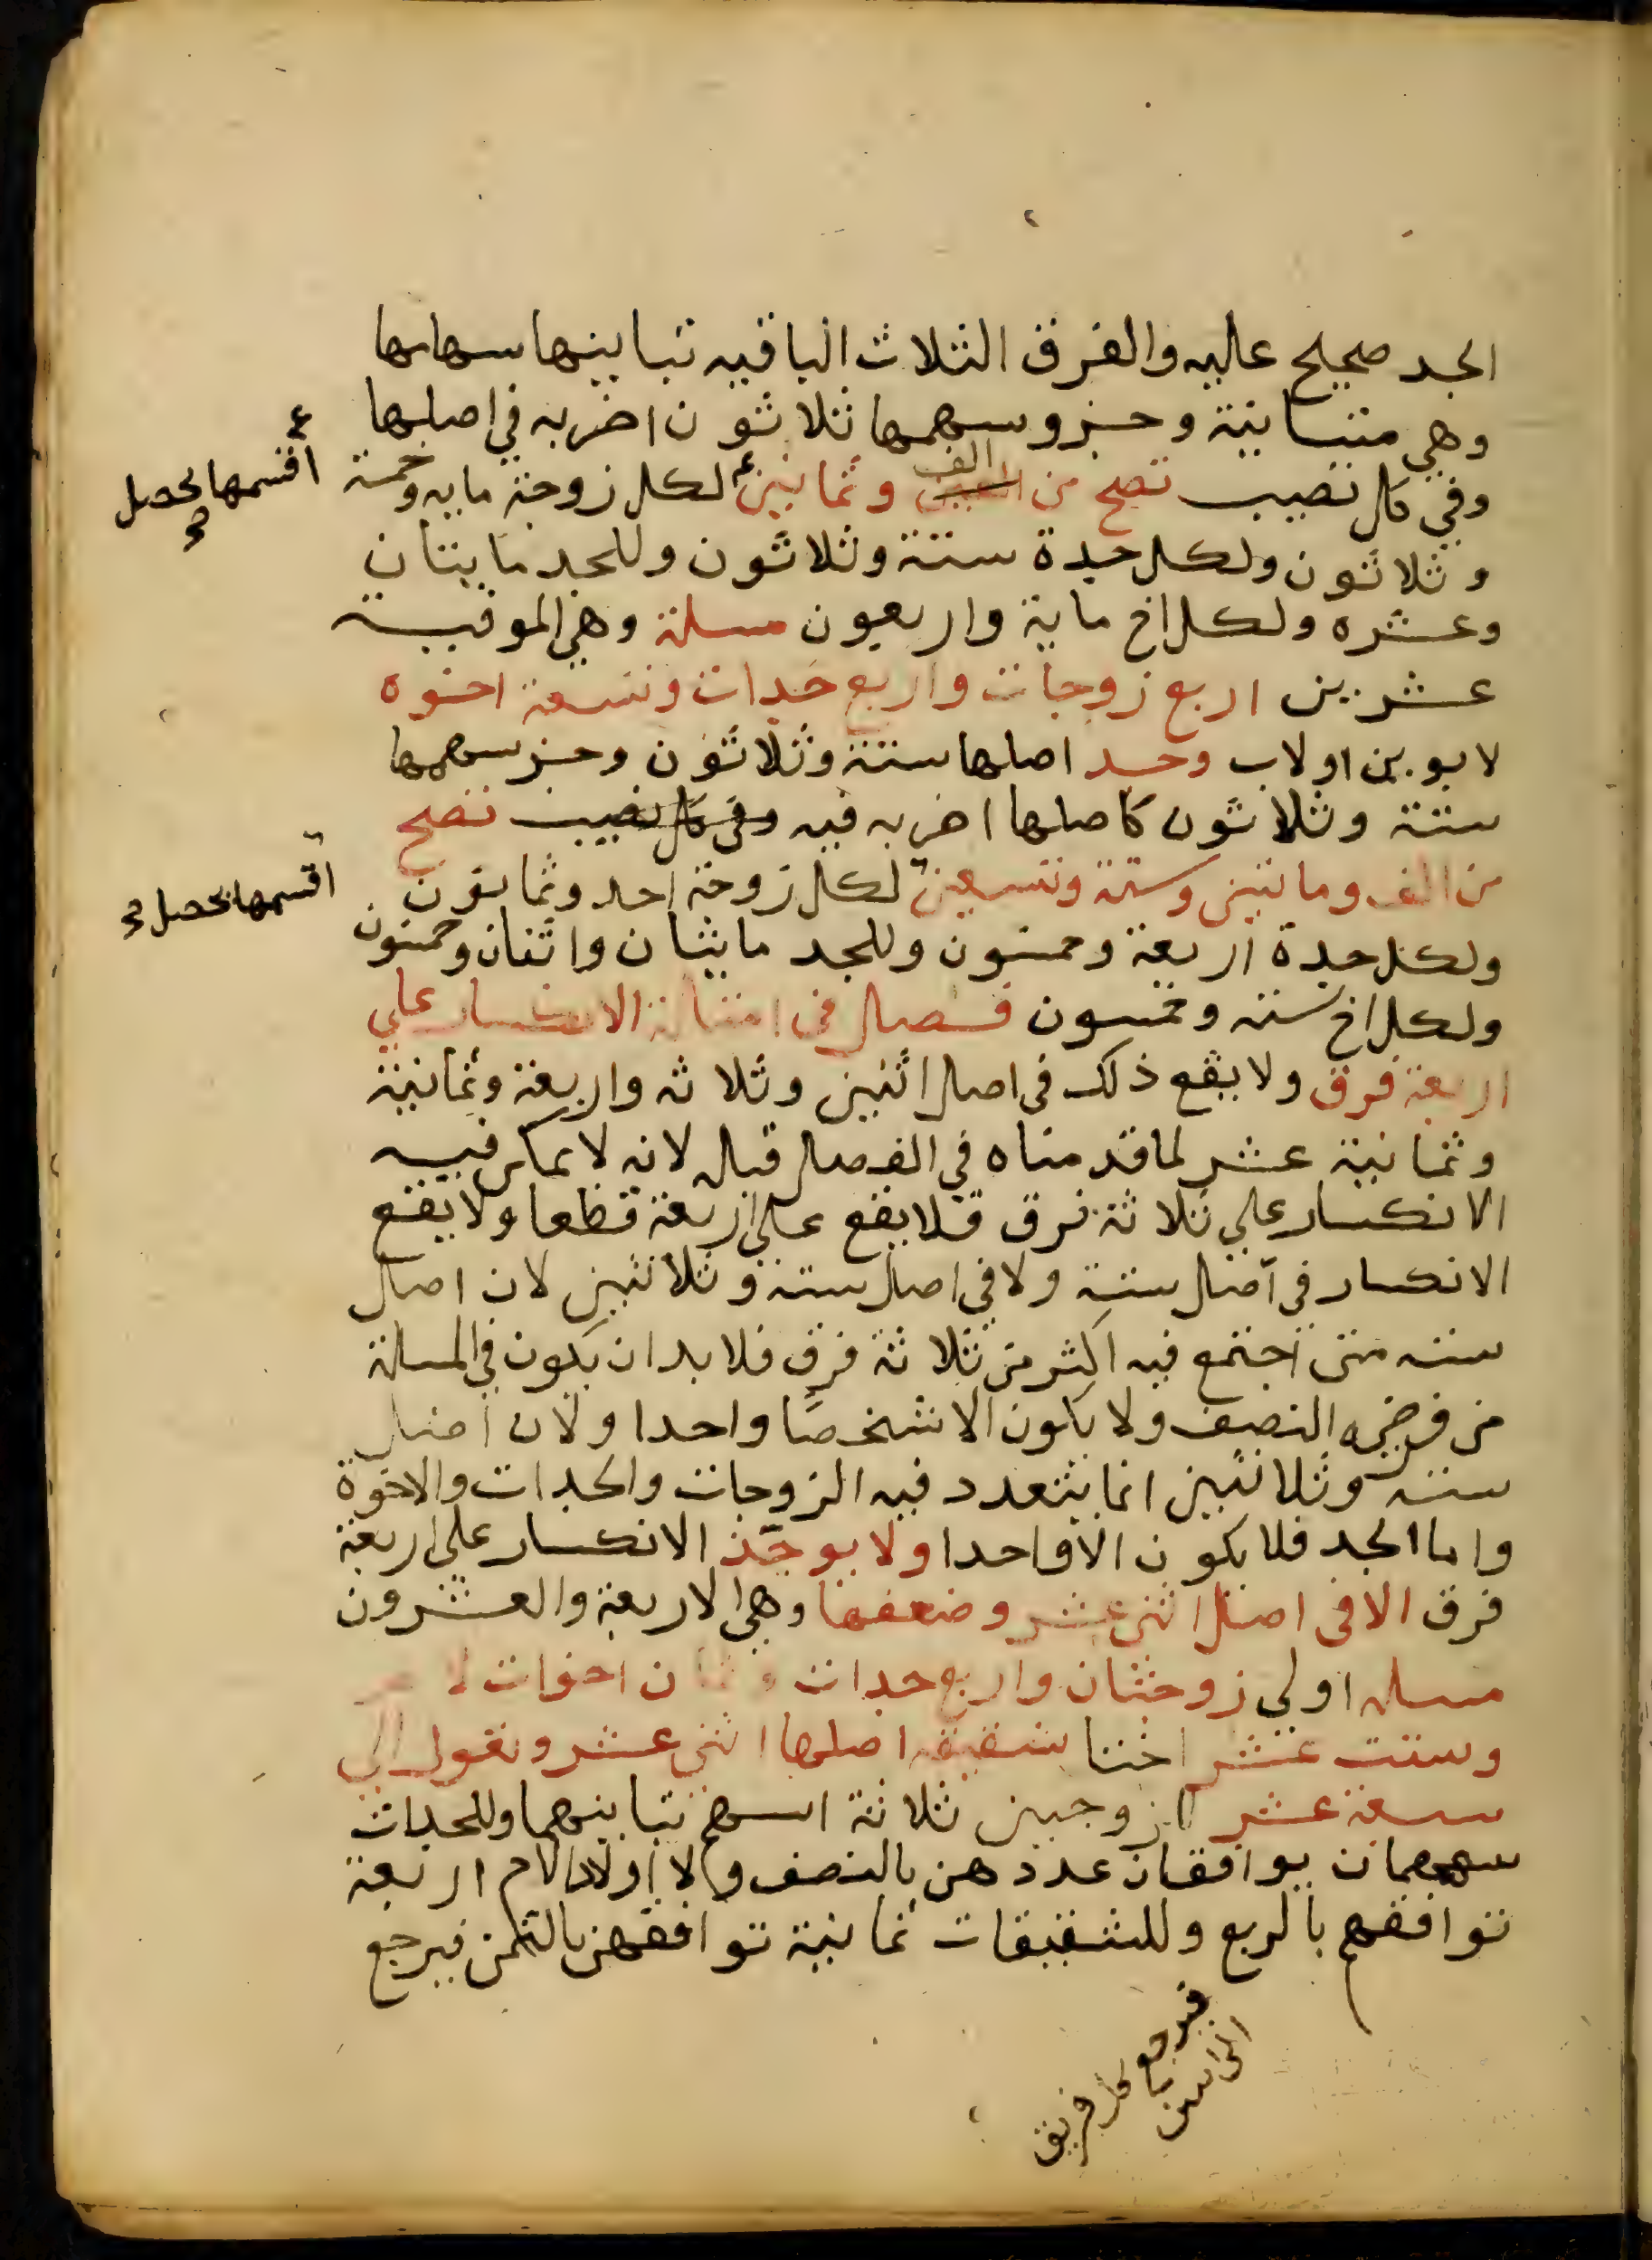 الجد صحيح عليه والفرق الثلاث الباقيه تباينها سهامها
وهي متباينة وجزو سهمها ثلاثون اضربه في اصلها
وفي كل نصيب تصح من الف وثمانين لكل زوجة مايه وخمسة
اقسمها يحصل
وثلاثون ولكل جدة ستة وثلاثون وللجد مايتان
وعشره ولكل اخ ماية واربعون مسلة وهي الموفيـة
عشرين اربع زوجات واربع جدات وتسعة اخوه
لابوين او لاب وجد اصلها ستة وثلاثون وجز سهمها
ستة وثلاثون كاصلها اضربه فيه وفي كل نصيب تصح
من الف وماتين وستة وتسعين لكل زوجة احد وثمانون
اقسمها يحصل
ولكل جدة اربعة وخمسون وللجد مايتان واثنان وخمسون
ولكل اخ ستة وخمسون فصل في امثلة الانكسار علي
اربعة فرق ولا يقع ذلك في اصل اثنين وثلاثه واربعة وثمانية
وثمانية عشر لما قدمناه في الفصل قبله لانه لا يمكن فيه
الانكسار علي ثلاثة فرق فلا يقع علي اربعة قطعا ولا يقع
الانكسار في اصل ستة ولا في اصل ستة وثلاثين لان اصل
سته متي اجتمع فيه اكثر من ثلاثة فرق فلا بد ان يكون في المسلة
من فرضه النصف ولا يكون الا شخصا واحدا ولان اصل
ستة وثلاثين انما يتعدد فيه الزوجات والجدات والاخوة
واما الجد فلا يكون الا واحدا ولا يوجد الانكسار علي اربعة
فرق الا في اصل اثني عشر وضعفها وهي الاربعة والعشرون
مسله اولي زوجتان واربع جدات وثمان اخوات لام
وستت عشر اختا شقيقه اصلها اثني عشر وتعول الي
سبعة عشر للزوجين ثلاثة اسهم تباينهما وللجدات
سهمان يوافقان عددهن بالنصف ولاولاد الام اربعة
توافقهم بالربع وللشقيقات ثمانية توافقهن بالثمن فيرجع
فيرجع كل فريق
الي اثنين